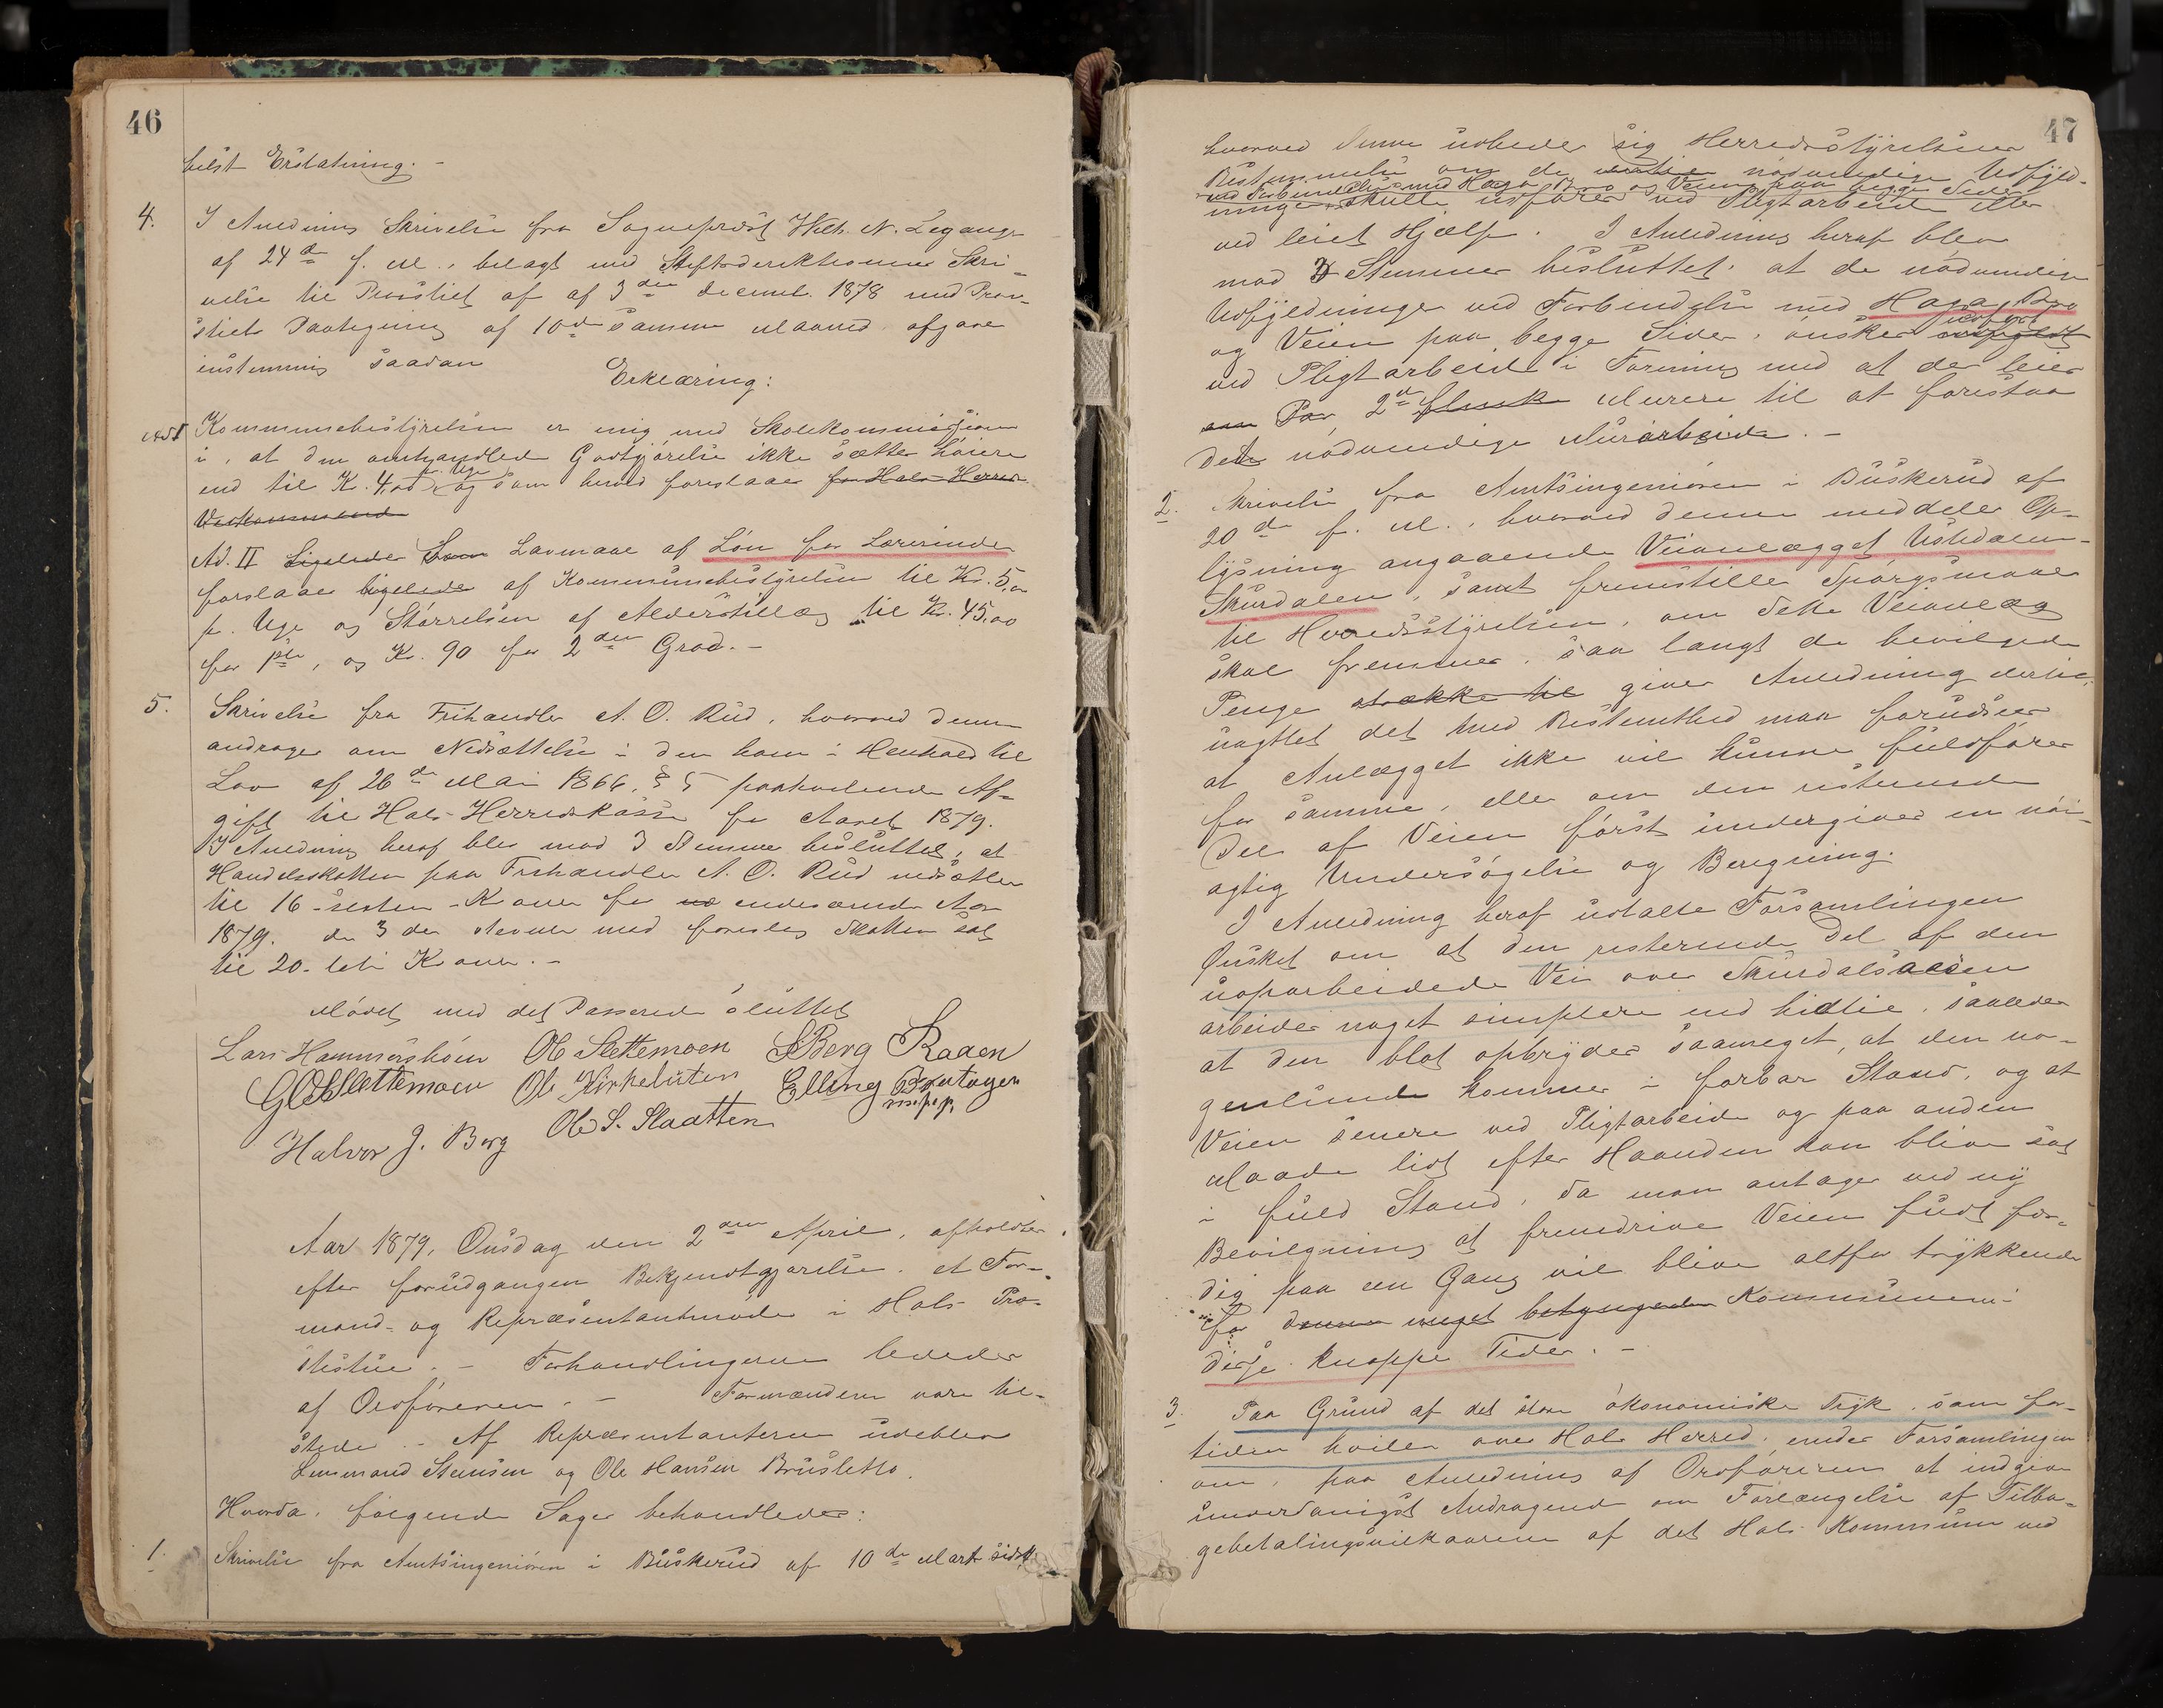 46
bust Erstatning. -
4. I Anledning Skrivelse fra Sogneprest Wilh. N. Legangr
af 24de f. M., belagt med Stiftsdirektionens Skri-
velse til Provstiet af af 3die decemb. 1878 med Prov-
stiets Paategning af 10de samme Maaned, afgaves
enstemmig saadan
Erklæring:
Ad I Kommunebestyrelsen er enig med Skolekommissjonen
i, at den omhandlede Godtgjörelse ikke sættes höiere
pr. Uge
end til Kr. 4,00, og som herved foreslaaes for Hols Herred
Vedkommende
Ad. II Ligeledes Som Lavmaal af Lön for Lærerinder
forslaaes ligeledes af Kommunebestyrelsen til Kr. 5,00
pr. Uge og Störrelsen af Alderstillæg til Kr. 45,00
for 1ste, og Kr. 90 for 2den Grad. -
5. Skrivelse fra Frihandler A. O. Rud, hvorved denne
andrager om Nedsættelse i den ham i Henhold til
Lov af 26de Mai 1866, § 5 paahvilende Af-
gift til Hols Herredskasse for Aaret 1879.
I Anledning heraf blev mod 3 Stemmer besluttet, at
Handelsskatten paa Frihandler A. O. Rud nedsættes
til 16 - sexten - Kroner for indeværende Aar
1879. de 3 der stemte mod foreslog Skatten sat
til 20 - tyve Kroner. -
Mödet med det Passerede sluttet
Lars Hammersböen Ole Slettemoen S Berg S Raaen
G O Slettemoen Ole Kirkebiten Elling Bratagen
m. p. p.
Halvor J. Berg Ole S. Slaatten
Aar 1879, Onsdag den 2den April, afholdtes
efter forudgangen Bekjendtgjörelse, et For-
mand- og Repræsentantmöde i Hols Præ-
stestue. - Forhandlingerne lededes
af Ordföreren. - Formændene vare til-
stede. - Af Repræsentanterne udeblev
Lensmand Stensen og Ole Hansen Brusletto.
Hvorda fölgende Sager behandledes:
1. Skrivelse fra Amtsingeniören i Buskerud af 10de Marts sidstl.
47
hvorved denne udbeder sig Herredsstyrelsens
Bestemmelse om de nödvendige Udfyld-
ved Forbindelsen med Haga Bro og Veien paa begge Sider
ninger skulle udföres ved Pligtarbeide eller
ved leiet Hjælp. I Anledning heraf blev
mod 3 Stemmer besluttet: at de nödvendige
Udfyldninger ved Forbindelse med Haga Bro
og Veien paa begge Sider, önskes udfört
ved Pligtarbeide i Forening med at der leies
Par, 2de flinke Murere til at forestaa
det nödvendige Murarbeide. -
2. Skrivelse fra Amtsingeniören i Buskerud af
20de f. M., hvorved denne meddeler Op-
lysning angaaende Veianlægget Ustedalen-
Skurdalen, samt fremstille Spörgsmaal
til Herredsstyrelsen, om dette Veianlæg
skal fremmes, saa langt de bevilgede
Penge strække til giver Anledning dertil,
uagtet det med Bestemthed maa forudsees
at Anlægget ikke vil kunne fuldföres
for samme, eller om den resterende
Del af Veien först undergives en nöi-
agtig Undersögelse og Beregning.
I Anledning heraf udtalte Forsamlingen
Önsket om at den resterende Del af den
uoparbeidede Vei over Skurdalsaasen
arbeides noget simplere end hidtil, saaledes
at den blot opbryder saameget, at den no-
genlunde kommer i farbar Stand, og at
Veien senere ved Pligtarbeide og paa anden
Maade lidt efter Haanden kan blive sat
i fuld Stand, da man antager ved ny
Bevilgning at fremdrive Veien fuldt fær-
dig paa en Gang vil blive altfor trykkende
for denne meget betyngede Kommunen i
disse knappe Tider. -
3. Paa Grund af det store ökonomiske Tryk, som for-
tiden hviler over Hols Herred, enedes Forsamlingen
om, paa Anledning af Ordföreren at indgive
underdanigst Andragende om Forlængelse af Tilba-
gebetalingsvilkaarene af det Hols Kommune ved